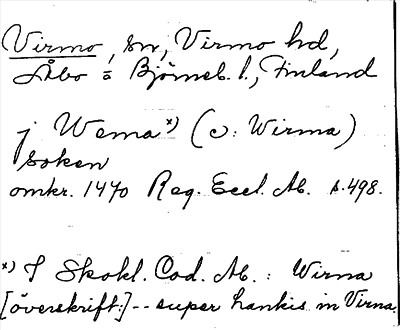 Virmo, sn, Virmo hd,
Åbo o Björneb. l., Finland
j Wema*) (ɔ: Wirma)
soken
omkr. 1470 Reg. Eccl. Ab. s. 498.
*) I Skokl. Cod. Ab.: Wirna
[överskrift:] -- super hankis in Virna.